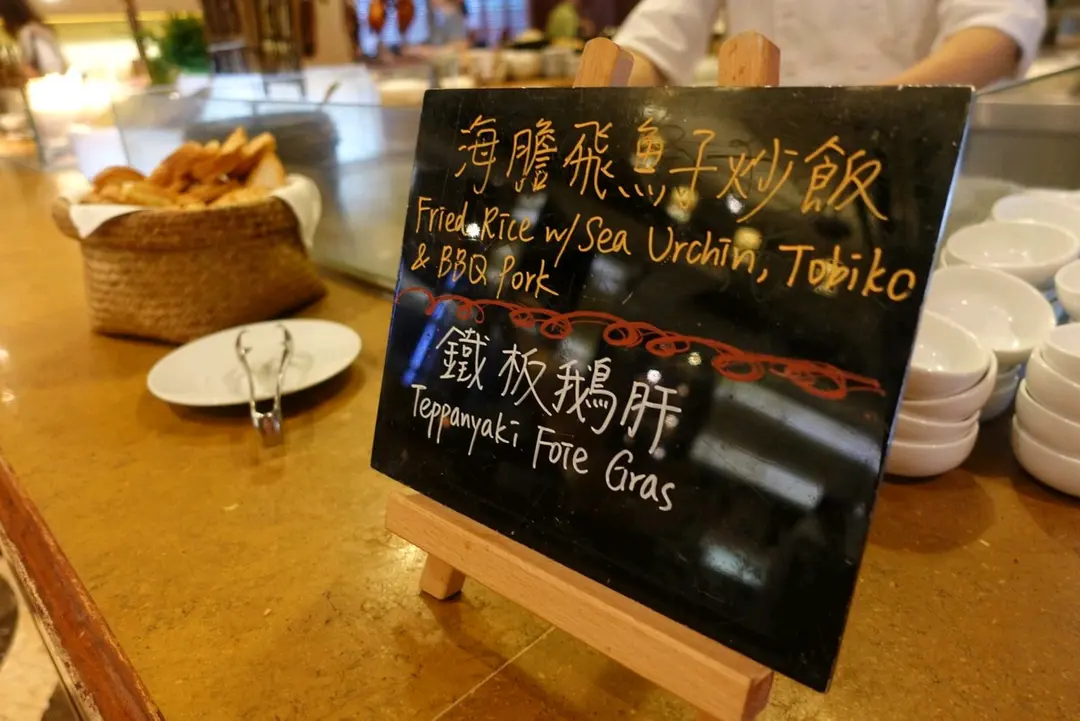 海膽飛魚子炒飯
Fried Rice w/ Sea Urchin, Tobiko
& BBQ Pork
鐵板鵝肝
Teppanyaki Foie Gras